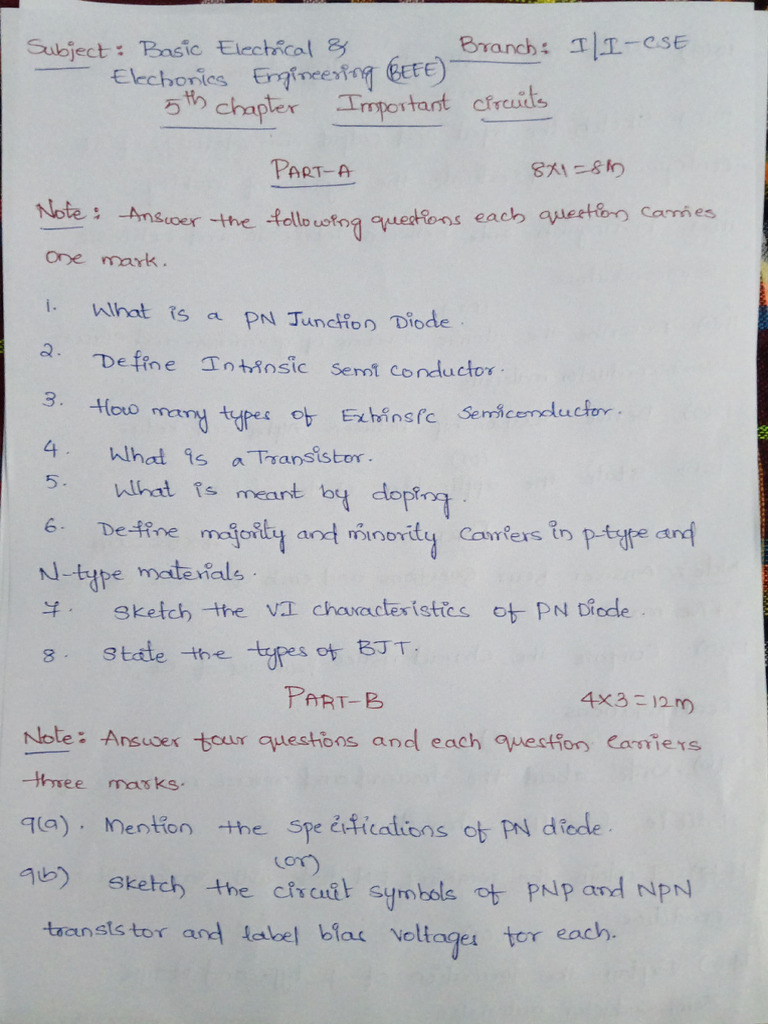 Subject: Basic Electrical & Branch: I/I-CSE
Electronics Engineering (BEEE)
5th chapter Important circuits
PART-A 8x1=8M
Note: Answer the following questions each question carries
one mark.
1. What is a PN Junction Diode.
2. Define Intrinsic semi conductor.
3. How many types of Extrinsic semiconductor.
4. What is a Transistor.
5. What is meant by doping.
6. Define majority and minority carriers in p-type and
N-type materials.
7. Sketch the VI characteristics of PN Diode.
8. State the types of BJT.
PART-B 4x3=12M
Note: Answer four questions and each question carriers
three marks.
9(a). Mention the specifications of PN diode.
(or)
9(b) Sketch the circuit symbols of PNP and NPN
transistor and label bias voltages for each.